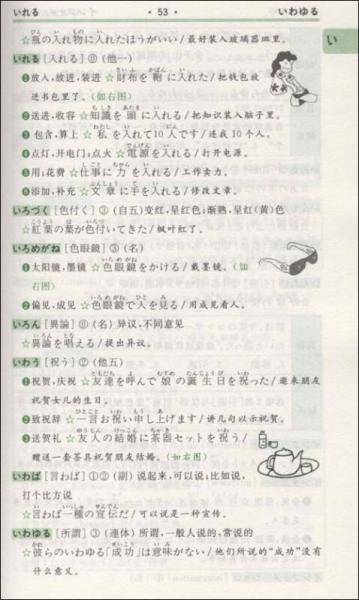 いれる ・53・ いわゆる
い
☆瓶の入れ物に入れたほうがいい/最好装入玻璃器皿里。
いれる [入れる] ⓪ (他一)
❶放入,放进,装进 ☆財布を鞄に入れた/把钱包放
进书包里了。(如右图)
❷送进,收容 ☆知識を頭に入れる/把知识装入脑子里。
❸包含,算上 ☆私を入れて10人です/连我10个人。
❹点灯,开电门;点火 ☆電源を入れる/打开电源。
❺用;花费 ☆仕事に力を入れる/工作卖力。
❻添加,补充 ☆文章に手を入れる/修改文章。
いろづく [色付く] ③ (自五) 变红,呈红色;渐熟,呈红(黄)色
☆紅葉の葉が色付いてきた/枫叶红了。
いろめがね [色眼鏡] ③ (名)
❶太阳镜,墨镜 ☆色眼鏡をかける/戴墨镜。(如
右图)
❷偏见,成见 ☆色眼鏡で人を見る/用成见看人。
いろん [異論] ⓪ (名) 异议,不同意见
☆異論を唱える/提出异议。
いわう [祝う] ② (他五)
❶祝贺,庆祝 ☆友達を呼んで娘の誕生日を祝った/邀来朋友
祝贺女儿的生日。
❷致祝辞 ☆一言お祝い申し上げます/讲几句以示祝贺。
❸送贺礼 ☆友人の結婚に茶器セットを祝う/
赠送一套茶具祝贺朋友结婚。(如右图)
いわば [言わば] ①② (副) 说起来,可以说;比如说,
打个比方说
☆言わば一種の宣伝だ/可以说是一种宣传。
いわゆる [所謂] ③ (连体) 所谓,一般人说的,常说的
☆彼らのいわゆる「成功」は意味がない/他们所说的“成功”没有
什么意义。